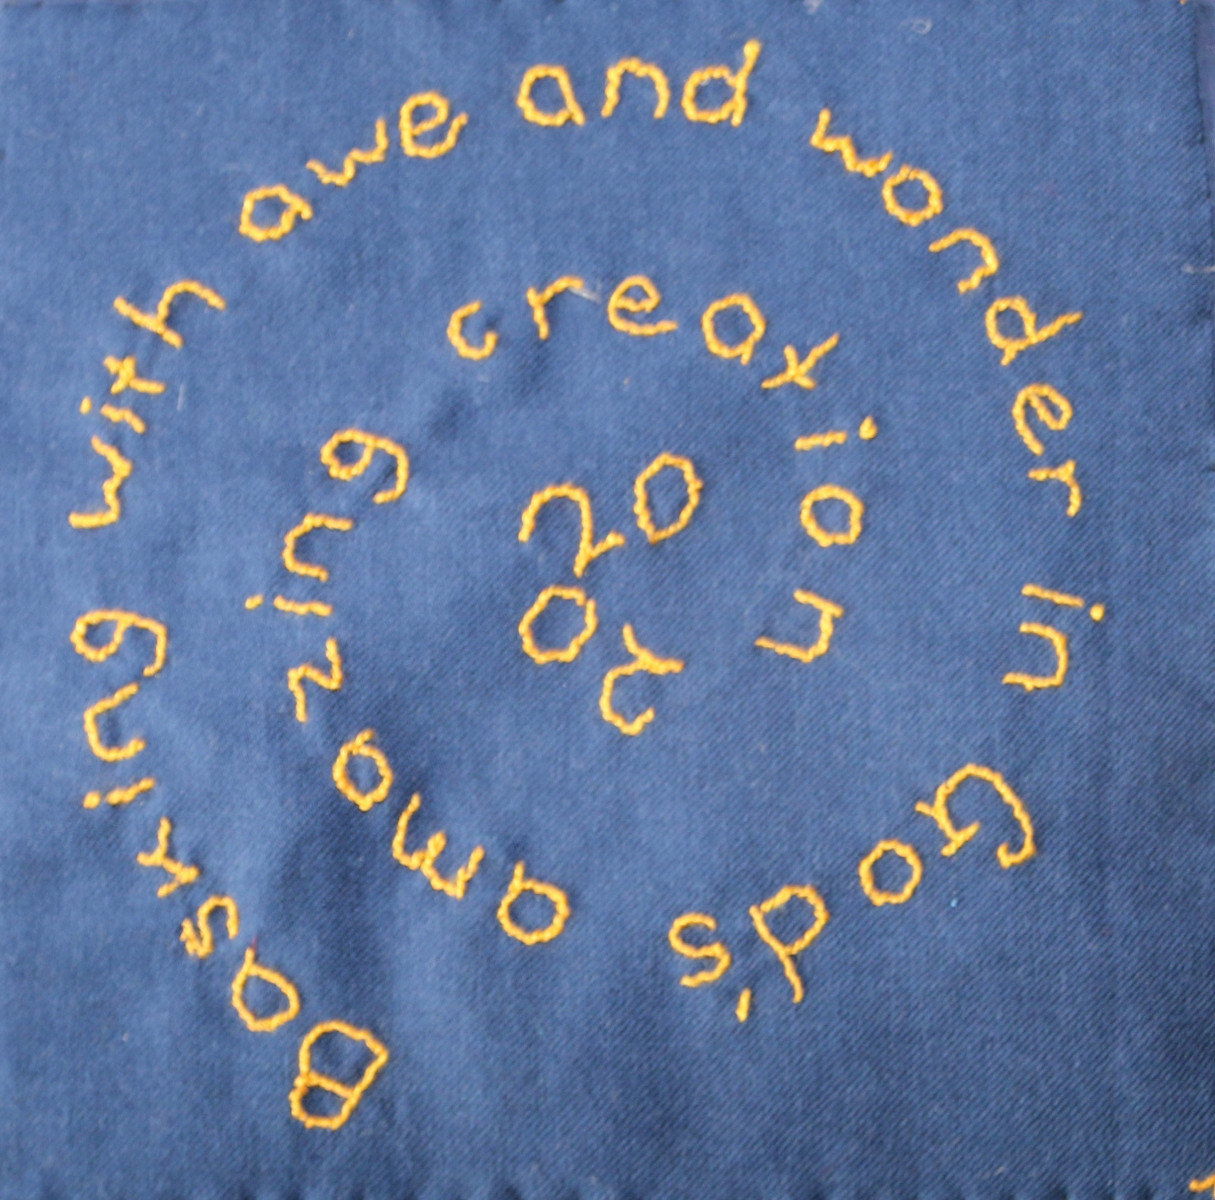 Basking with awe and wonder in God's amazing creation
20
02